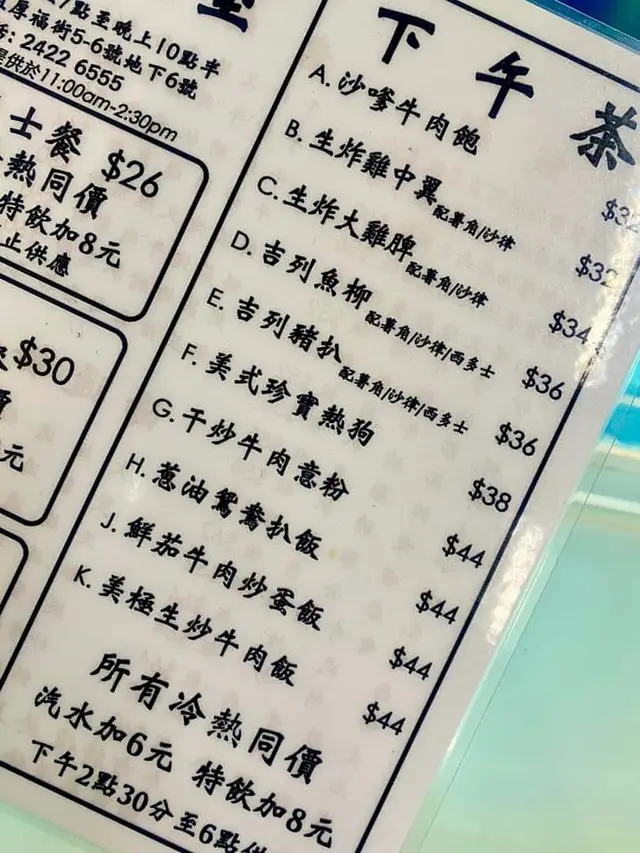 室
7點至晚上10點半
厚福街5-6號地下6號
話: 2422 6555
提供於11:00am-2:30pm
士餐 $26
熱同價
特飲加8元
止供應
$30
元
下午茶
A. 沙嗲牛肉飽 $32
B. 生炸雞中翼 配薯角/沙律 $32
C. 生炸大雞脾 配薯角/沙律 $34
D. 吉列魚柳 配薯角/沙律/西多士 $36
E. 吉列豬扒 配薯角/沙律/西多士 $36
F. 美式珍寶熱狗 $38
G. 干炒牛肉意粉 $44
H. 蔥油鴛鴦扒飯 $44
J. 鮮茄牛肉炒蛋飯 $44
K. 美極生炒牛肉飯 $44
所有冷熱同價
汽水加6元 特飲加8元
下午2點30分至6點供